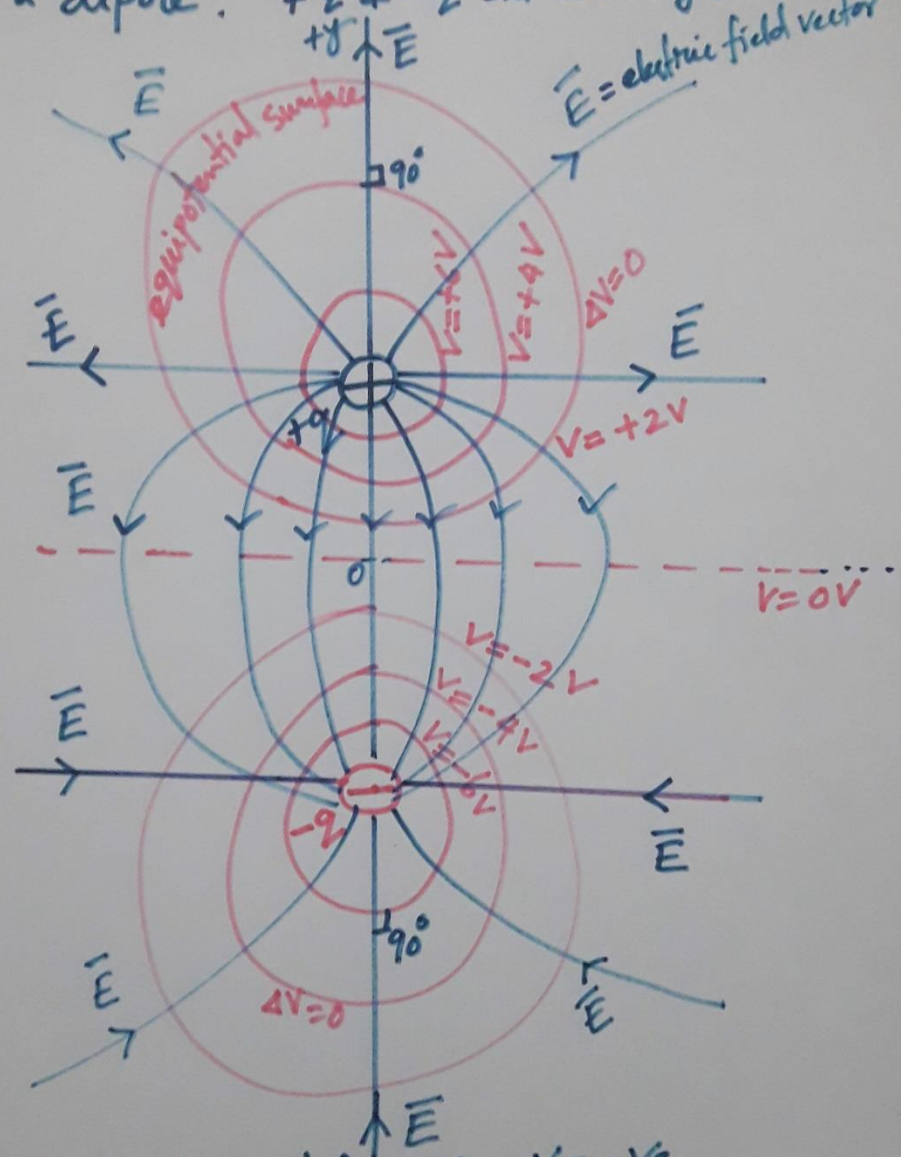 a dipole.
+y
E̅
E̅
E̅ = electric field vector
equipotential surface
90°
V=+4V
ΔV=0
E̅
E̅
+q
V= +2V
E̅
0
V=0V
V=-2V
V=-4V
V=-6V
E̅
-q
E̅
90°
E̅
ΔV=0
E̅
E̅